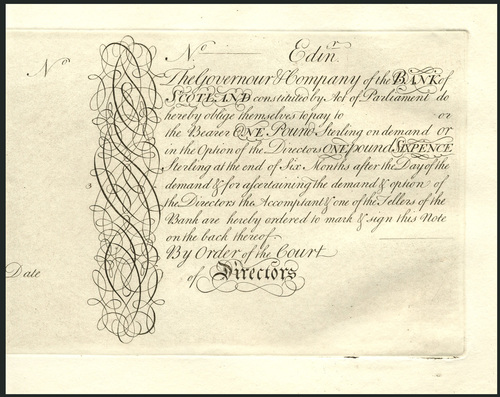 No
No Edinr.
The Governour & Company of the BANK of
SCOTLAND constituted by Act of Parliament do
hereby oblige themselves to pay to or
the Bearer ONE Pound Sterling on demand or
in the Option of the Directors ONE pound SIXPENCE
Sterling at the end of Six Months after the Day of the
demand & for ascertaining the demand & option of
the Directors the Accomptant & one of the Tellers of the
Bank are hereby ordered to mark & sign this Note
on the back thereof
By Order of the Court
of Directors
3
Date